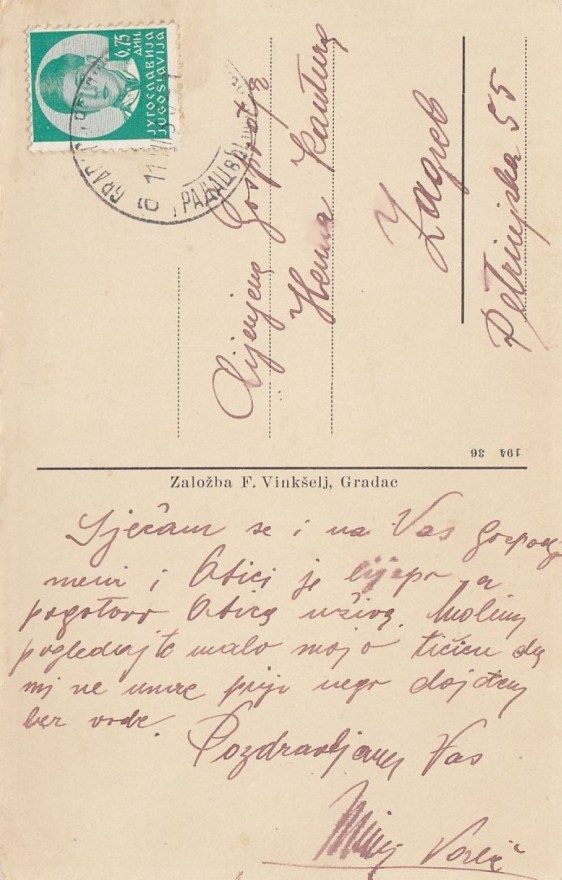 0,75
ДИН.
ЈУГОСЛАВИЈА
JUGOSLAVIJA
11
Cijenjena
Gospodja
Herma Kantura
Zagreb
Petrinjska 55
194 36
Založba F. Vinkšelj, Gradac
Sjećam se i na Vas gospodja
meni i Atici je lijepo a
pogotovo Atica uživa. Molim
pogledajte malo moju tičicu da
mi ne umre prije nego dojdem
bez vode.
Pozdravljam Vas